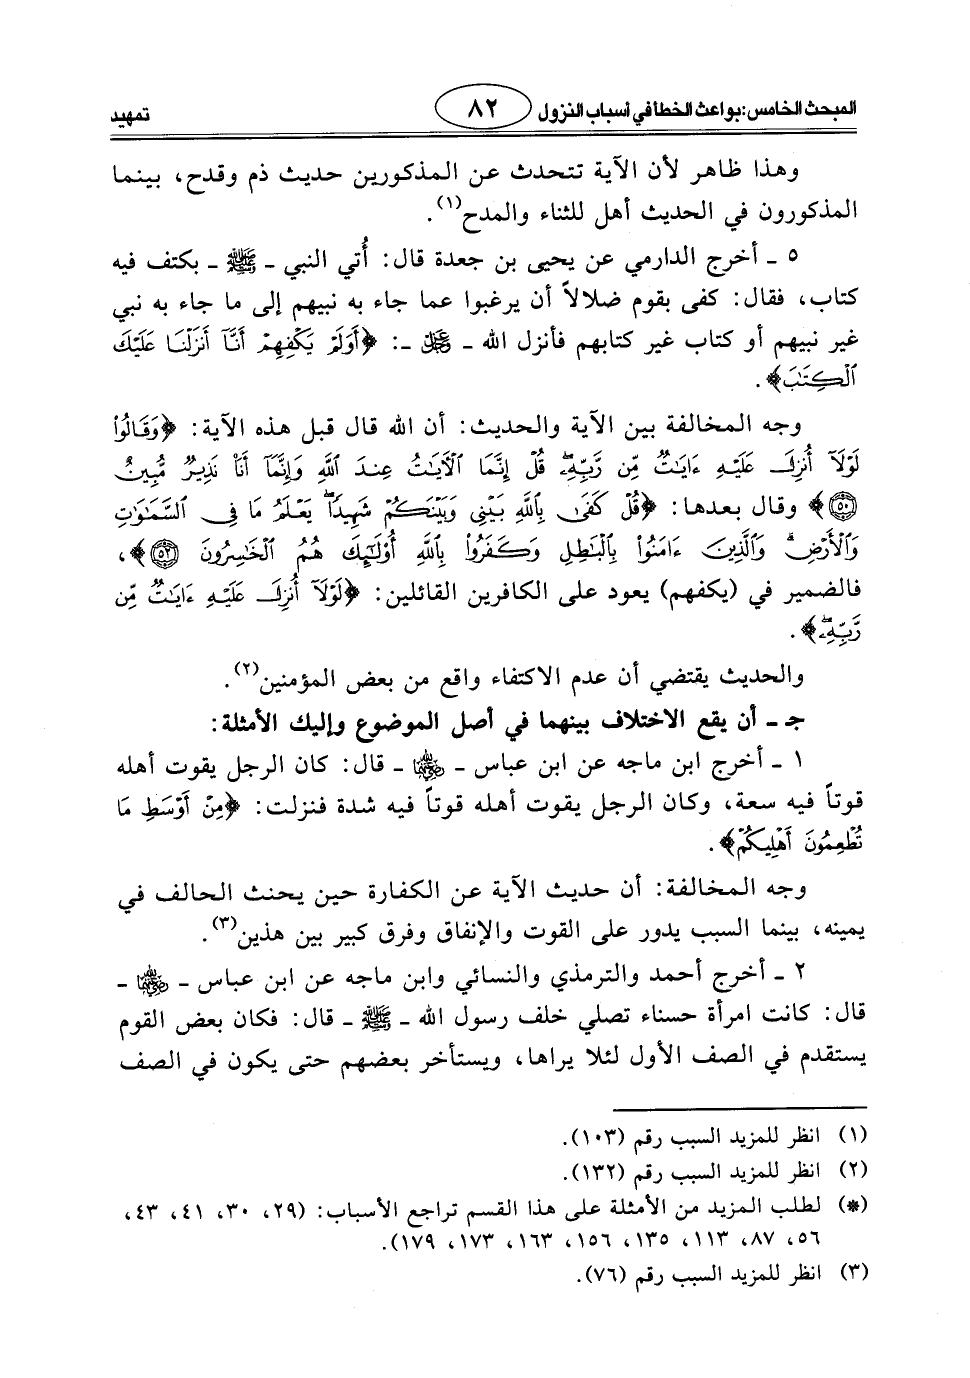 المبحث الخامس: بواعث الخطأ في أسباب النزول ٨٢ تمهيد
وهذا ظاهر لأن الآية تتحدث عن المذكورين حديث ذم وقدح، بينما
المذكورون في الحديث أهل للثناء والمدح(١).
٥ ـ أخرج الدارمي عن يحيى بن جعدة قال: أُتي النبي ـ ﷺ ـ بكتف فيه
كتاب، فقال: كفى بقوم ضلالاً أن يرغبوا عما جاء به نبيهم إلى ما جاء به نبي
غير نبيهم أو كتاب غير كتابهم فأنزل الله ـ ﷿ ـ: ﴿أَوَلَمْ يَكْفِهِمْ أَنَّآ أَنزَلْنَا عَلَيْكَ
ٱلْكِتَٰبَ﴾.
وجه المخالفة بين الآية والحديث: أن الله قال قبل هذه الآية: ﴿وَقَالُوا۟
لَوْلَآ أُنزِلَ عَلَيْهِ ءَايَٰتٌ مِّن رَّبِّهِۦ ۖ قُلْ إِنَّمَا ٱلْءَايَٰتُ عِندَ ٱللَّهِ وَإِنَّمَآ أَنَا۠ نَذِيرٌ مُّبِينٌ
۝٥٠﴾ وقال بعدها: ﴿قُلْ كَفَىٰ بِٱللَّهِ بَيْنِى وَبَيْنَكُمْ شَهِيدًا ۖ يَعْلَمُ مَا فِى ٱلسَّمَٰوَٰتِ
وَٱلْأَرْضِ ۗ وَٱلَّذِينَ ءَامَنُوا۟ بِٱلْبَٰطِلِ وَكَفَرُوا۟ بِٱللَّهِ أُو۟لَٰٓئِكَ هُمُ ٱلْخَٰسِرُونَ ۝٥٢﴾،
فالضمير في (يكفهم) يعود على الكافرين القائلين: ﴿لَوْلَآ أُنزِلَ عَلَيْهِ ءَايَٰتٌ مِّن
رَّبِّهِۦ ۖ﴾.
والحديث يقتضي أن عدم الاكتفاء واقع من بعض المؤمنين(٢).
جـ ـ أن يقع الاختلاف بينهما في أصل الموضوع وإليك الأمثلة:
١ ـ أخرج ابن ماجه عن ابن عباس ـ رضي الله عنهما ـ قال: كان الرجل يقوت أهله
قوتاً فيه سعة، وكان الرجل يقوت أهله قوتاً فيه شدة فنزلت: ﴿مِنْ أَوْسَطِ مَا
تُطْعِمُونَ أَهْلِيكُمْ﴾.
وجه المخالفة: أن حديث الآية عن الكفارة حين يحنث الحالف في
يمينه، بينما السبب يدور على القوت والإنفاق وفرق كبير بين هذين(٣).
٢ ـ أخرج أحمد والترمذي والنسائي وابن ماجه عن ابن عباس ـ رضي الله عنهما ـ
قال: كانت امرأة حسناء تصلي خلف رسول الله ـ ﷺ ـ قال: فكان بعض القوم
يستقدم في الصف الأول لئلا يراها، ويستأخر بعضهم حتى يكون في الصف
(١) انظر للمزيد السبب رقم (١٠٣).
(٢) انظر للمزيد السبب رقم (١٣٢).
(*) لطلب المزيد من الأمثلة على هذا القسم تراجع الأسباب: (٢٩، ٣٠، ٤١، ٤٣،
٥٦، ٨٧، ١١٣، ١٣٥، ١٥٦، ١٦٣، ١٧٣، ١٧٩).
(٣) انظر للمزيد السبب رقم (٧٦).